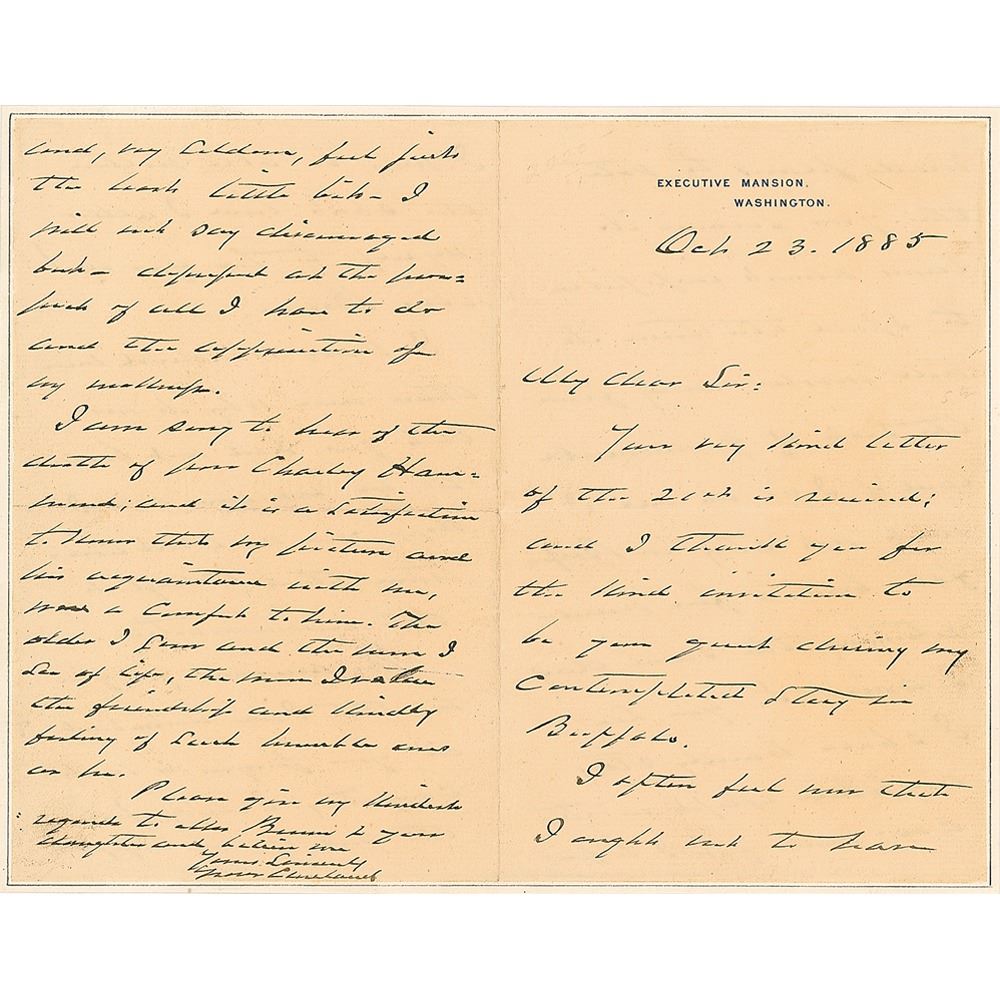 EXECUTIVE MANSION.
WASHINGTON.
Oct 23. 1885
My dear Sir:
Your very kind letter
of the 20th is received;
and I thank you for
the kind invitation to
be your guest during my
contemplated stay in
Buffalo.
I often feel now that
I ought not to have
and, very seldom, feel just
the least little bit - I
will not say discouraged
but - depressed at the pros=
pect of all I have to do
and the appreciation of
my
I am sorry to hear of the
death of poor Charley Ham=
mond; and it is a satisfaction
to know that my picture and
his acquaintance with me,
was a comfort to him. The
older I grow and the more I
see of life, the more I value
the friendship and kindly
feeling of such humble ones
as he.
Please give my kindest
regards to Mrs & your
daughter and believe me
Yours Sincerely
Grover Cleveland